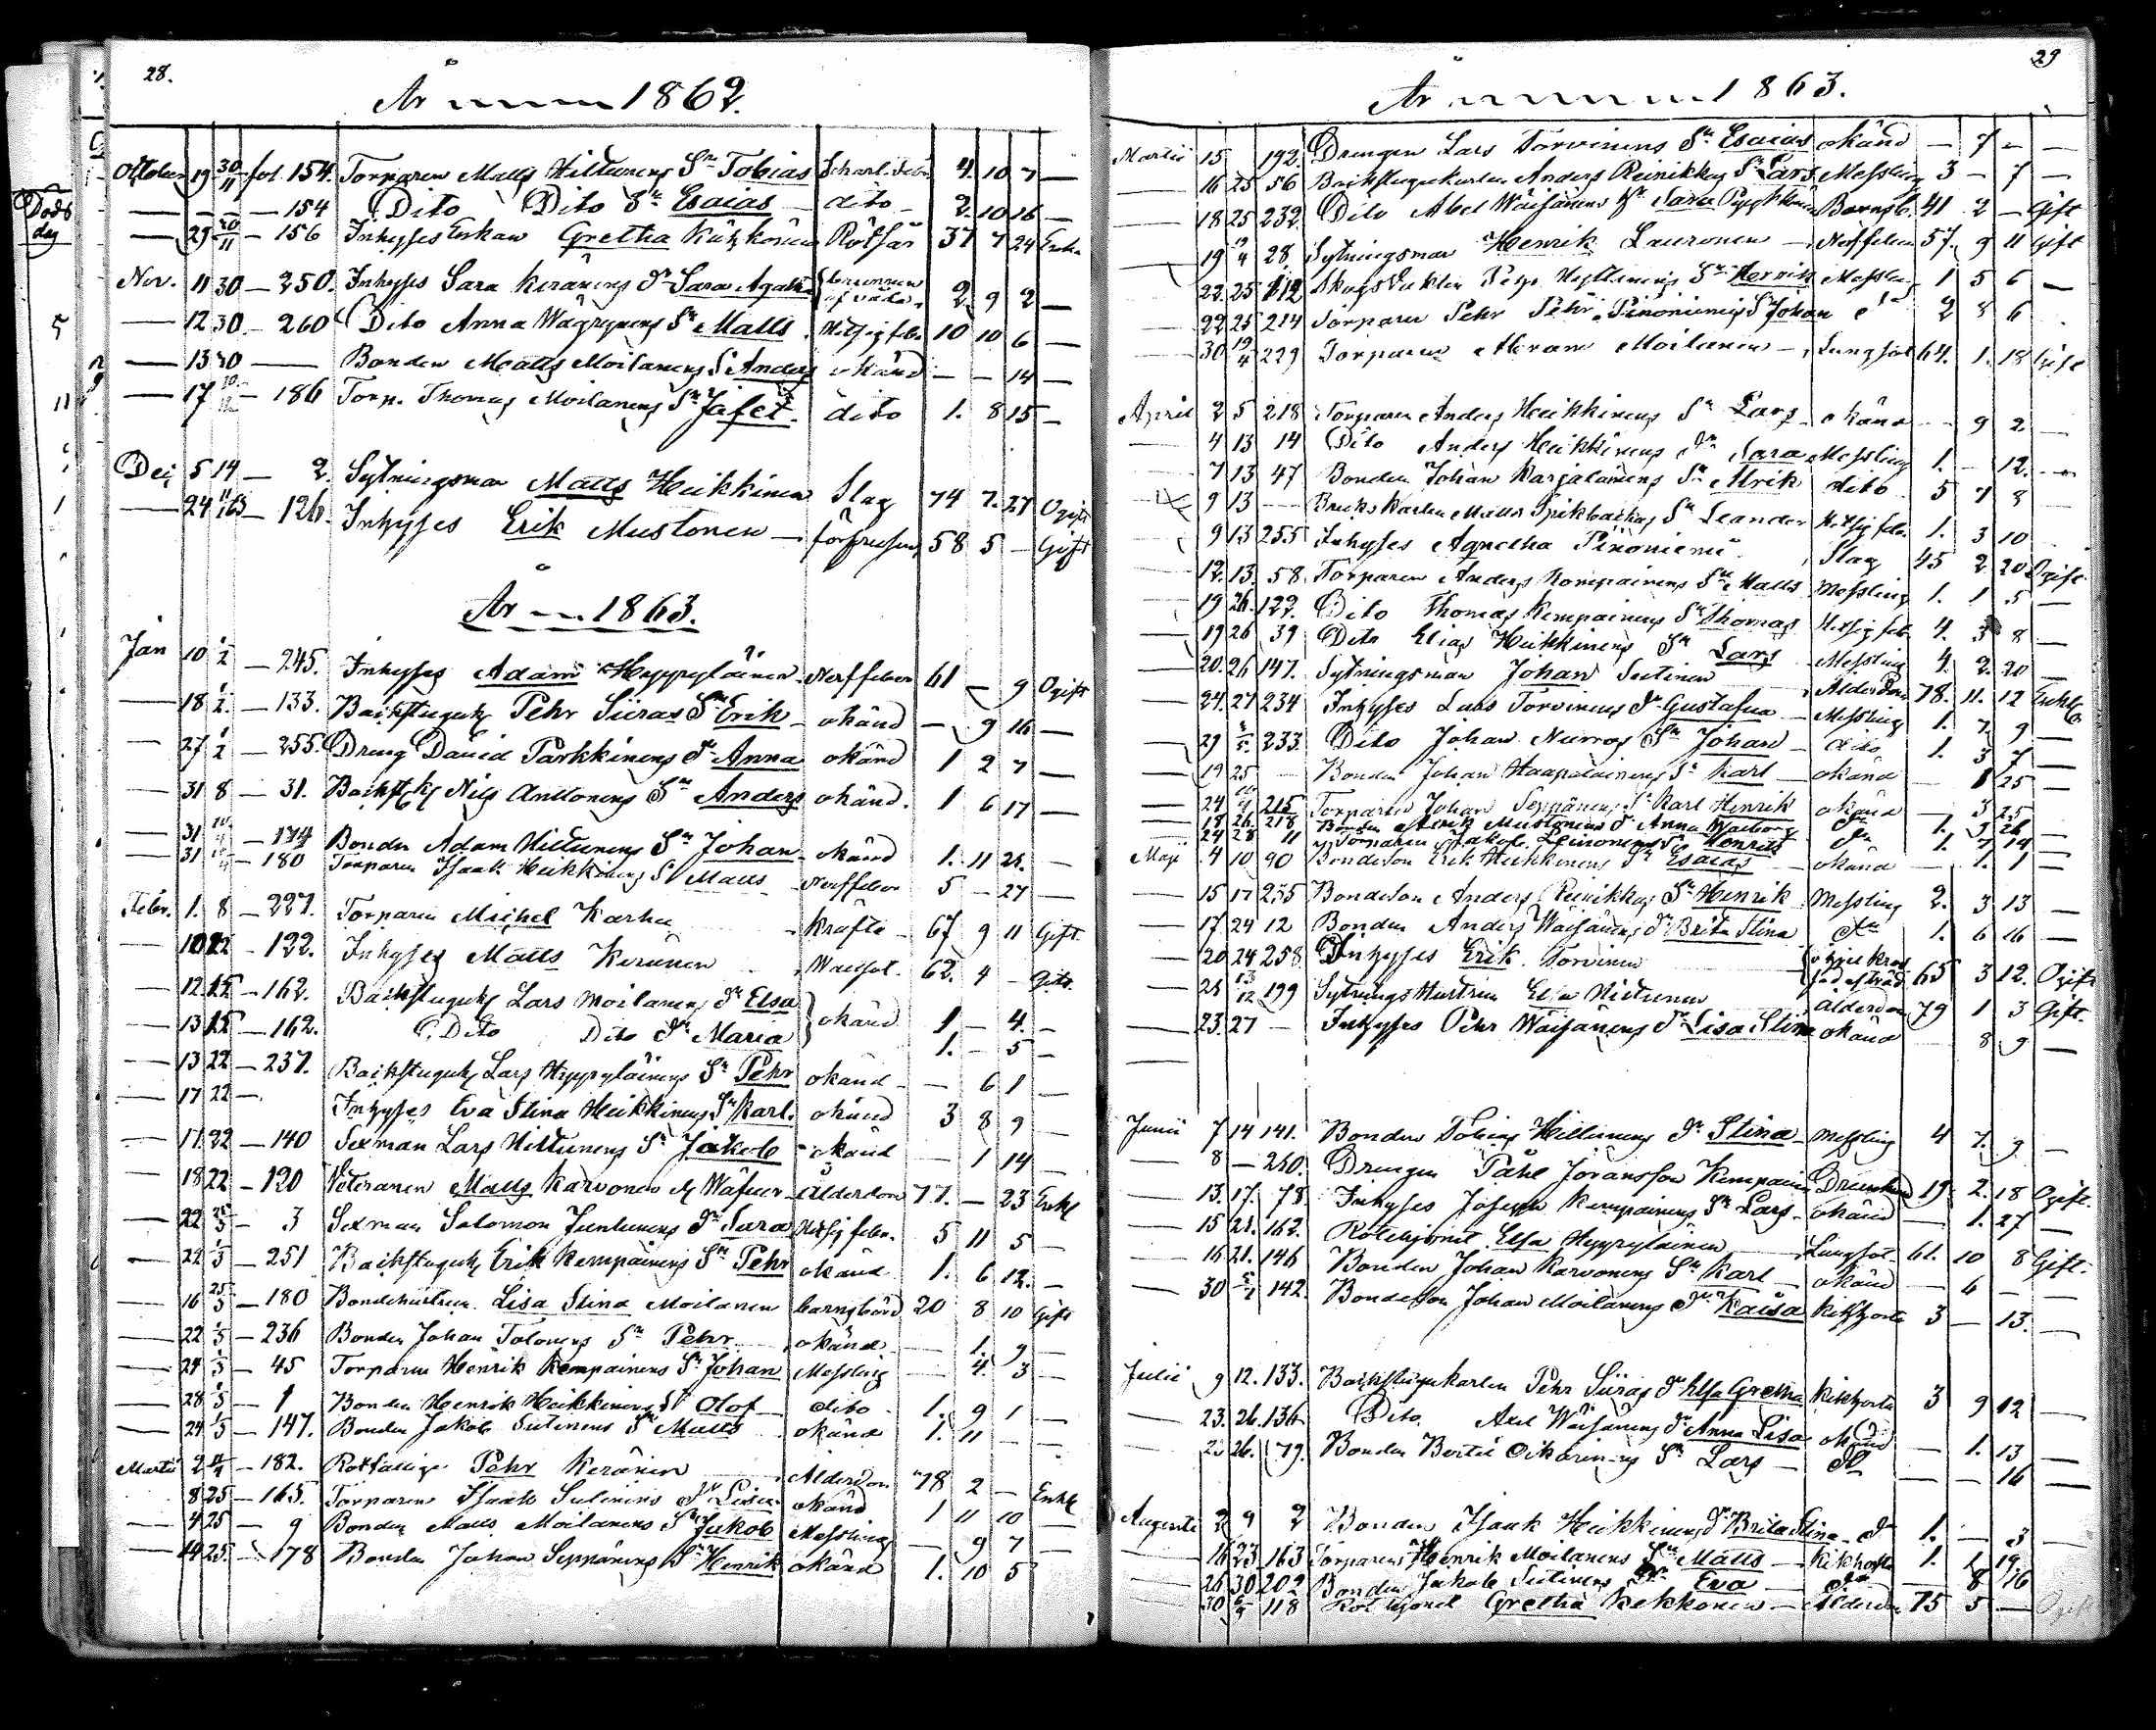 28.
År 1862.
October 19 30/11 fol. 154. Torparen Matts Hiltunens Sn Tobias Scharl. Febr. 4. 10 7 —
— — — 154 Dito Dito Sn Esaias dito 2. 10 16 —
— 29 30/11 — 156 Inhyses Enkan Gretha Rötsår 37 7 24 Enka
Nov. 11 30 — 250. Inhyses Sara Keränens Dr Sara Agatha 2. 9 2 —
— 12 30 — 260 Dito Anna Sn Matts Hetsig feb. 10 10 6 —
— 13 30 — Bonden Matts Moilanens S. Anders okänd — — 14 —
— 17 — 186 Torp. Thomas Moilanens Sn Jafet dito 1. 8 15 —
Dec 5 14 — 2. Sytningsman Matts Heikkinen Slag 74 7. 27 Ogift
— 24 — 126. Inhyses Erik Mustonen — förfrusen 58 5 — Gift
År 1863.
Jan 10 1/2 — 245. Inhyses Adam Hyyryläinen Nerffeber 61 — 9 Ogift
— 18 1/2 — 133. Backstuguk Pehr Siiras Sn Erik okänd — 9 16 —
— 27 1/2 — 255. Dreng David Parkkinens Dr Anna okänd 1 2 7 —
— 31 8 — 31. Backst Nils Anttonens Sn Anders okänd. 1 6 17 —
— 31 — 174 Bonden Adam Hiltunens Sn Johan okänd 1. 11 25. —
— 31 — 180 Torparen Isaak Heikkinens Sn Matts Nerffeber 5 — 27 —
Febr. 1. 8 — 227. Torparen Michel Karhu Kräfta 67 9 11 Gift
— 10 22 — 122. Inhyses Matts Keränen Wattsot. 62. 4 — Gift.
— 12 15 — 162. Backstuguk Lars Moilanens Dr Elsa okänd 1 — 4. —
— 13 15 — 162. Dito Dito Dr Maria 1. — 5 —
— 13 22 — 237. Backstuguk Lars Hyyryläinens Sn Pehr okänd — 6 1 —
— 17 22 — Inhyses Eva Stina Heikkinens Sn Karl. okänd 3 8 9 —
— 17. 22 — 140 Sexman Lars Hiltunens Sn Jakob okänd — 1 14 —
— 18 22 — 120 Veteranen Matts Karvonen Ålderdom 77. — 23 Enkl
— 22 — 3 Sexman Salomon Juntunens Dr Sara Hetsig feber. 5 11 5 —
— 22 1/3 — 251 Backstuguk Erik Kempainens Sn Pehr okänd 1. 6 12. —
— 16 25/3 — 180 Bondehustrun Lisa Stina Moilanen barnsbörd 20 8 10 Gift
— 22 1/3 — 236 Bonden Johan Tolonens Sn Pehr okänd — 1. 9 —
— 24 1/3 — 45 Torparen Henrik Kempainens Sn Johan Messling — 4. 3 —
— 28 1/3 — 1 Bonden Henrik Heikkinens Sn Olof dito 1. 9 1 —
— 24 1/3 — 147. Bonden Jakob Sutinens Sn Matts okänd 1. 11 — —
Martii 2 — 182. Rotfattige Pehr Keränen Ålderdom 78 2 — Enkl
8 25 — 165. Torparen Isaak Sutinens Dr Lisa okänd 1 11 10 —
— 4 25 — 9 Bonden Matts Moilanens Sn Jakob Messling — 9 7 —
— 14 25. — 178 Bonden Johan Seppänens Sn Henrik okänd 1. 10 5
29
År 1863.
Martii 15 192. Drengen Lars Torvinens Sn Esaias okänd — 7 — —
— 16 25 56 Backstugukarlen Anders Reinikkas Sn Lars Messling 3 — 7 —
— 18 25 232. Dito Abel Wäisänens Sara Barnsb. 41 2 — Gift
— 19 28 Sytningsman Henrik Lauronen — Nerffeber 57. 9 11 Gift
22. 25 112 Sn Henrik Messling 1 5 6 —
22 25 214 Torparen Pehr Pehr. Pinoniemis S Johan 2 8 6
30 19/4 229 Torparen Abram Moilanen — Lungsot 64. 1. 18 Gift
April 2 5 218 Torparen Anders Heikkinens Sn Lars okänd — 9 2 —
— 4 13 14 Dito Anders Heikkinens Dr Sara Messling 1. — 12. —
— 7 13 47 Bonden Johan Karjalainens Sn Ulrik dito 5 7 8
9 13 — Bruks Karlen Sn Leander Hetsig feb. 1. 3 10
— 9 13 255 Inhyses Agnetha Pinoniemi Slag 45 2 20 Ogift
— 12. 13. 58. Torparen Anders Kempainens Sn Matts Messling 1. 1 5 —
— 19 26. 122. Dito Thomas Kempainens Sn Thomas Hetsig feb 4. 3 8 —
— 19 26 39 Dito Elias Heikkinens Sn Lars Messling 4. 2. 20 —
— 20. 26 147. Sytningsman Johan Sutinen Ålderdom 78. 11. 12 Enkl
— 24. 27 234 Inhyses Lars Torvinens Dr Gustafva Messling 1. 7 9 —
— 29 233 Dito Johan Nurros Sn Johan dito 1. 3 7 —
19 25 — Bonden Johan Haapalainens Sn Karl okänd — 1 25 —
— 24 215 Torparen Johan Seppänens S. Karl Henrik okänd — 3 25 —
— 18 26 218 Bonden Mustonens Dr Anna Walborg 1. 9 26 —
— 24 28 11 Torparen Jakob Leinonens Sn Henrik 1. 7 14 —
Maji 4 10 90 Bondeson Erik Heikkinens Sn Esaias okänd — 1. 1 —
— 15 17 255 Bondeson Anders Reinikkas Sn Henrik Messling 2. 3 13 —
— 17 24 12 Bonden Anders Wäisänens Dr Brita Stina 1. 6 16 —
— 20 24 258 Inhyses Erik Torvinen 65 3 12. Ogift
— 25 199 Sytnings Hustrun Elsa Hiltunen Ålderdom 79 1 3 Gift.
— 23. 27 — Inhyses Pehr Wäisänens Dr Lisa Stina okänd 8 9 —
Junii 7 14 141. Bonden Tobias Hiltunens Dr Stina Messling 4 7. 9 —
— 8 — 260. Drengen Påhl Joransson Kempainen Drunknad 19 2. 18 Ogift.
— 13. 17. 78. Inhyses Joseph Kempainens Sn Lars okänd — 1. 27 —
— 15 21. 162. Rotehjonet Elsa Hyyryläinen Lungsot. 61. 10 8 Gift.
— 16 21. 146 Bonden Johan Karvonens Sn Karl okänd — 6 —
— 30 142. Bondeson Johan Moilanens Dr Kaisa Kikhosta 3 — 13. —
Julii 9 12. 133. Backstugukarlen Pehr Siiras Dr Elsa Gretha Kikhosta 3 9 12 —
— 23. 26. 136 Dito Axel Wäisänens Dr Anna Lisa okänd — 1. 13 —
— 25 26. 179. Bonden Bertil Oikarinens Sn Lars — — — 16 —
Augusti 2 9 2 Bonden Isaak Heikkinens Dr Brita Stina 1. — 3 —
— 16 23 163 Torparens Henrik Moilanens Sn Matts Kikhosta 1. 1 19
— 26 30 202 Bonden Jakob Sutinens Dr Eva 8 16
— 30 118 Rothjonet Gretha Kekkonen Ålderdom 75 5 — Ogift